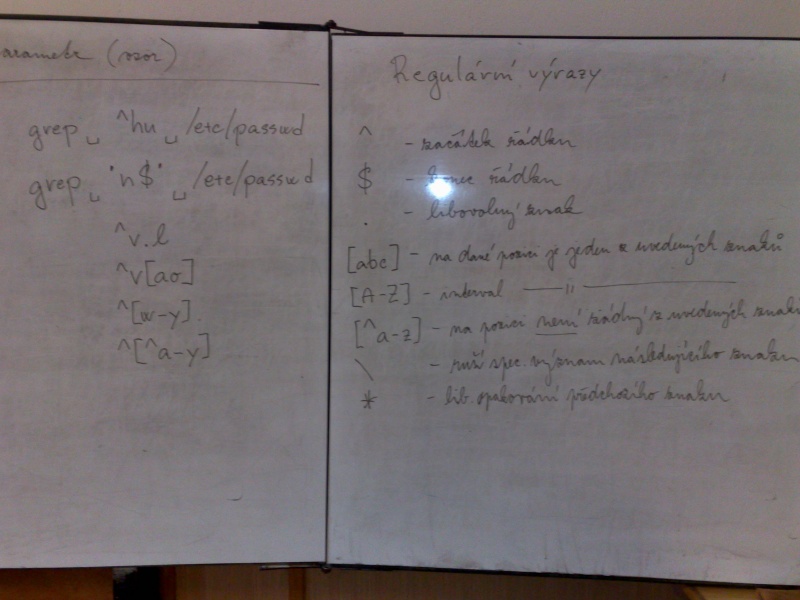 (vzor)
grep ␣ ^hu ␣ /etc/passwd
grep ␣ 'n$' ␣ /etc/passwd
^v.l
^v[ao]
^[w-y]
^[^a-y]
Regulární výrazy
^ - začátek řádku
$ - konec řádku
. - libovolný znak
[abc] - na dané pozici je jeden z uvedených znaků
[A-Z] - interval —— ıı ——
[^a-z] - na pozici není žádný z uvedených znaků
\ - ruší spec. význam následujícího znaku
* - lib. opakování předchozího znaku